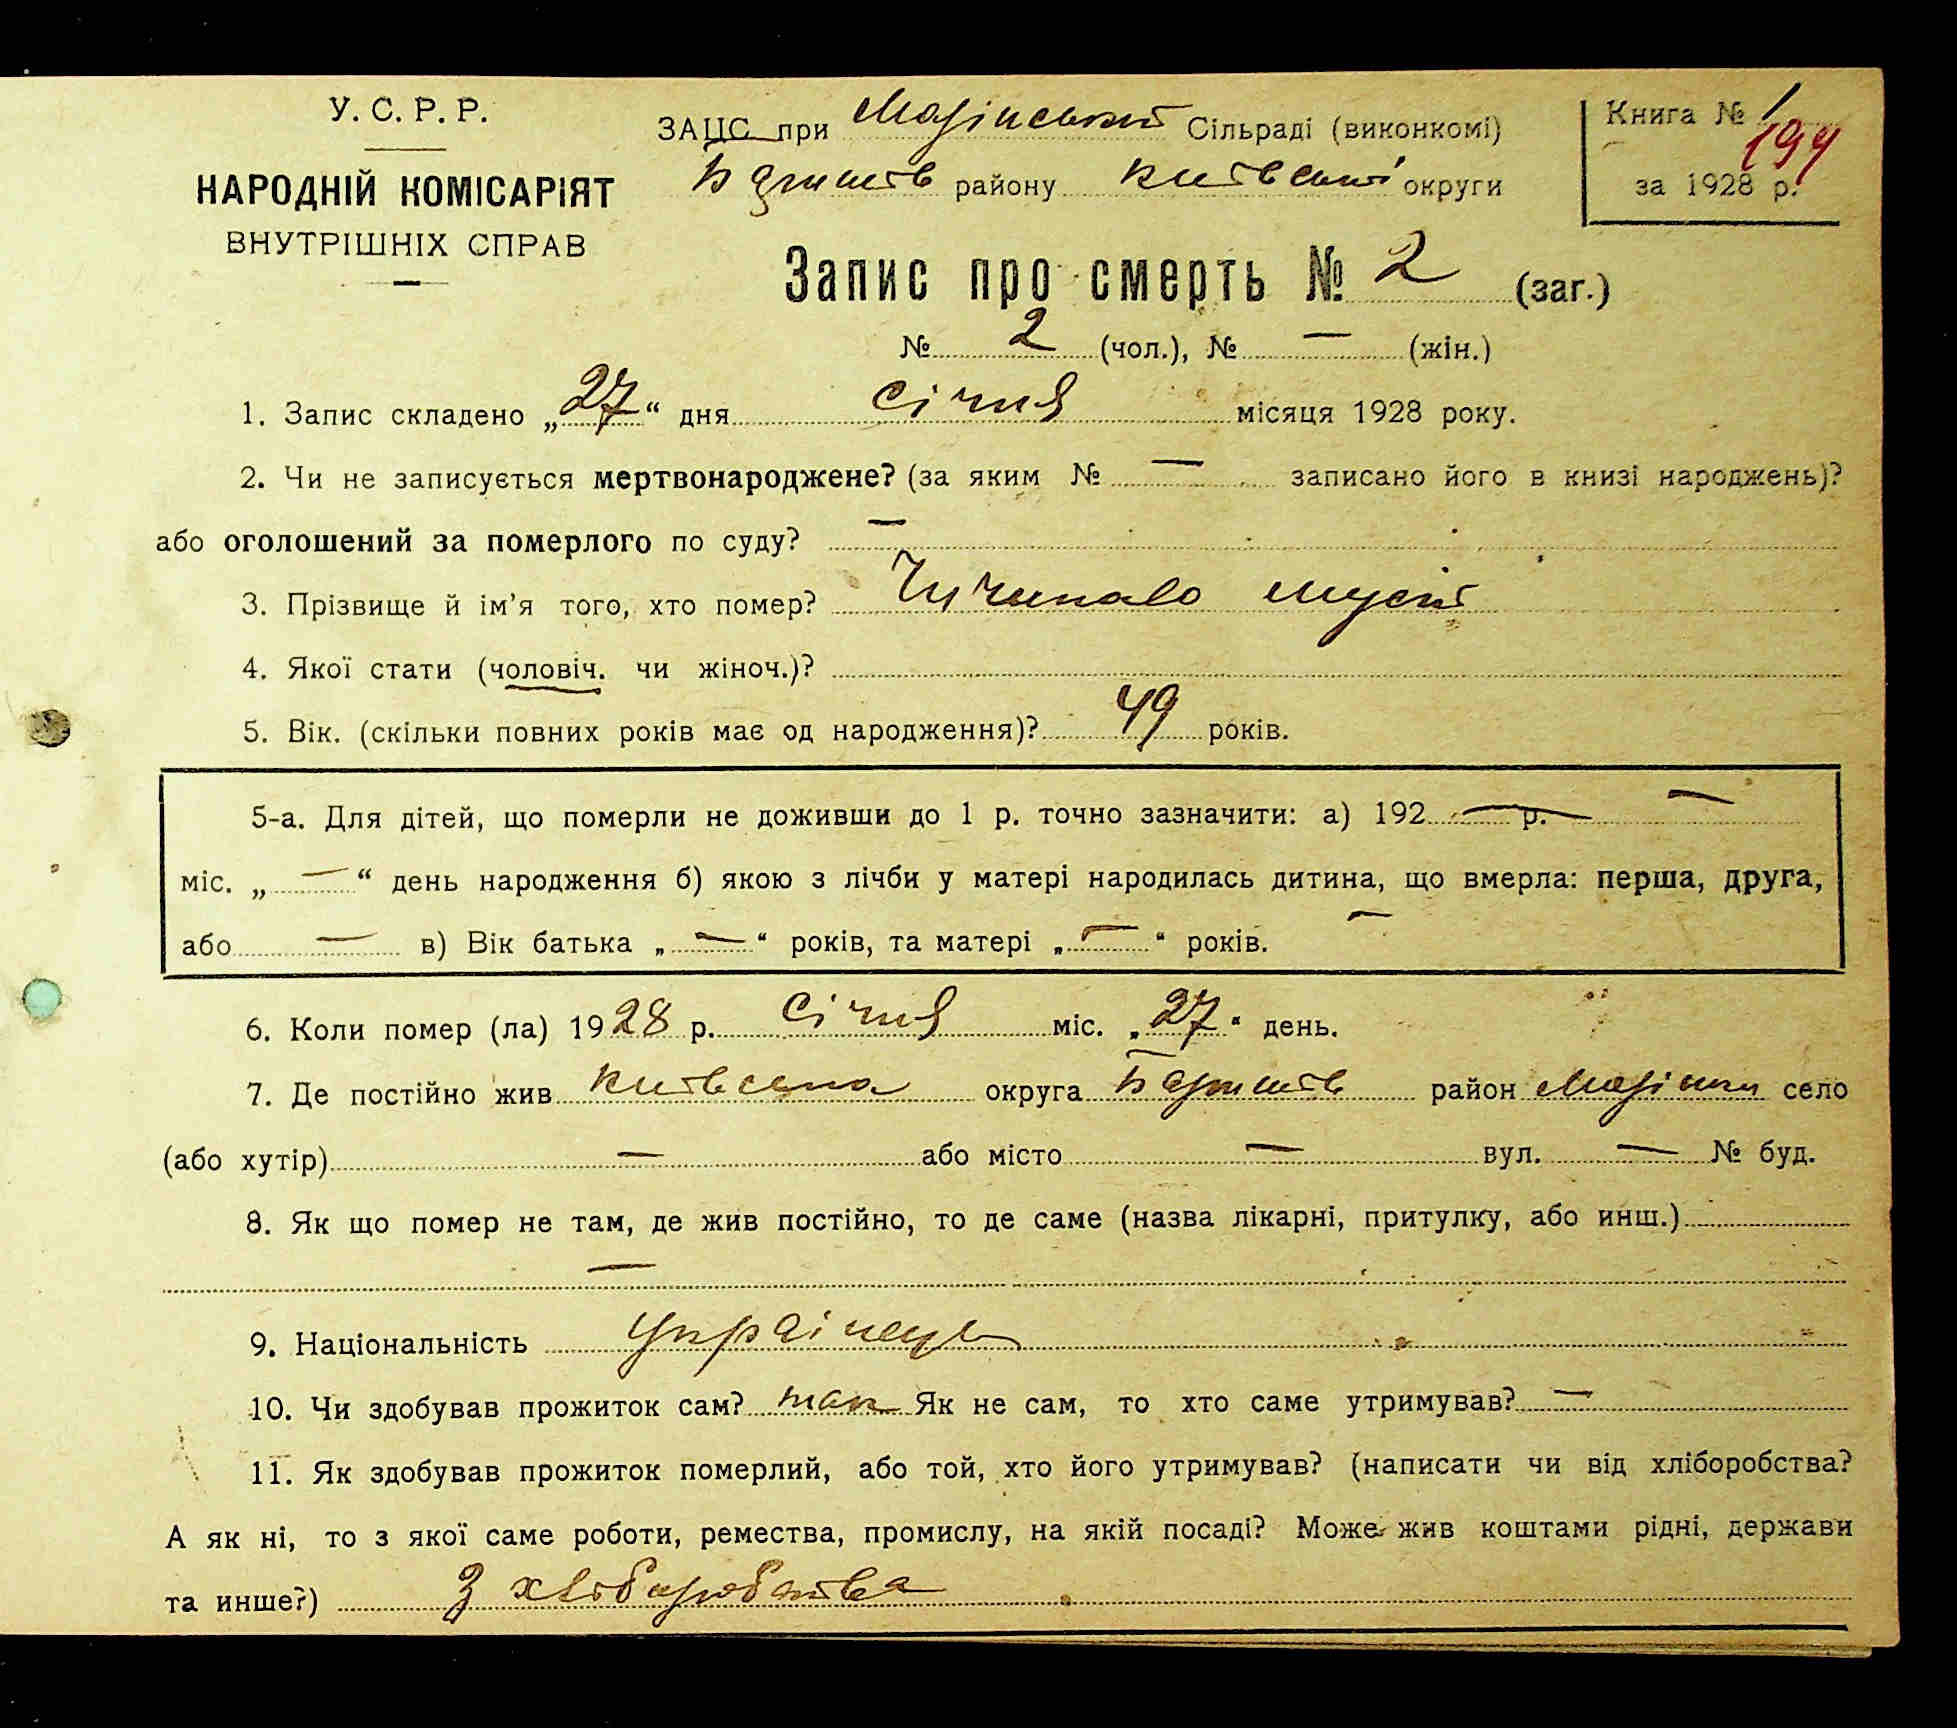 У. С. Р. Р.
НАРОДНІЙ КОМІСАРІЯТ
ВНУТРІШНІХ СПРАВ
ЗАЦС при Сільраді (виконкомі)
району Київської округи
Книга № 1
194
за 1928 р.
Запис про смерть № 2 (заг.)
№ 2 (чол.), № — (жін.)
1. Запис складено „27“ дня січня місяця 1928 року.
2. Чи не записується мертвонароджене? (за яким № — записано його в книзі народжень)?
або оголошений за померлого по суду? —
3. Прізвище й ім'я того, хто помер? Мусій
4. Якої стати (чоловіч. чи жіноч.)?
5. Вік. (скільки повних років має од народження)? 49 років.
5-а. Для дітей, що померли не доживши до 1 р. точно зазначити: а) 192 — р. —
міс. „—“ день народження б) якою з лічби у матері народилась дитина, що вмерла: перша, друга,
або — в) Вік батька „—“ років, та матері „—“ років. —
6. Коли помер (ла) 1928 р. Січня міс. „27“ день.
7. Де постійно жив Київська округа район село
(або хутір) — або місто — вул. — № буд.
8. Як що помер не там, де жив постійно, то де саме (назва лікарні, притулку, або инш.)
—
9. Національність Українець
10. Чи здобував прожиток сам? так Як не сам, то хто саме утримував? —
11. Як здобував прожиток померлий, або той, хто його утримував? (написати чи від хліборобства?
А як ні, то з якої саме роботи, ремества, промислу, на якій посаді? Може жив коштами рідні, держави
та инше?) З хліборобства